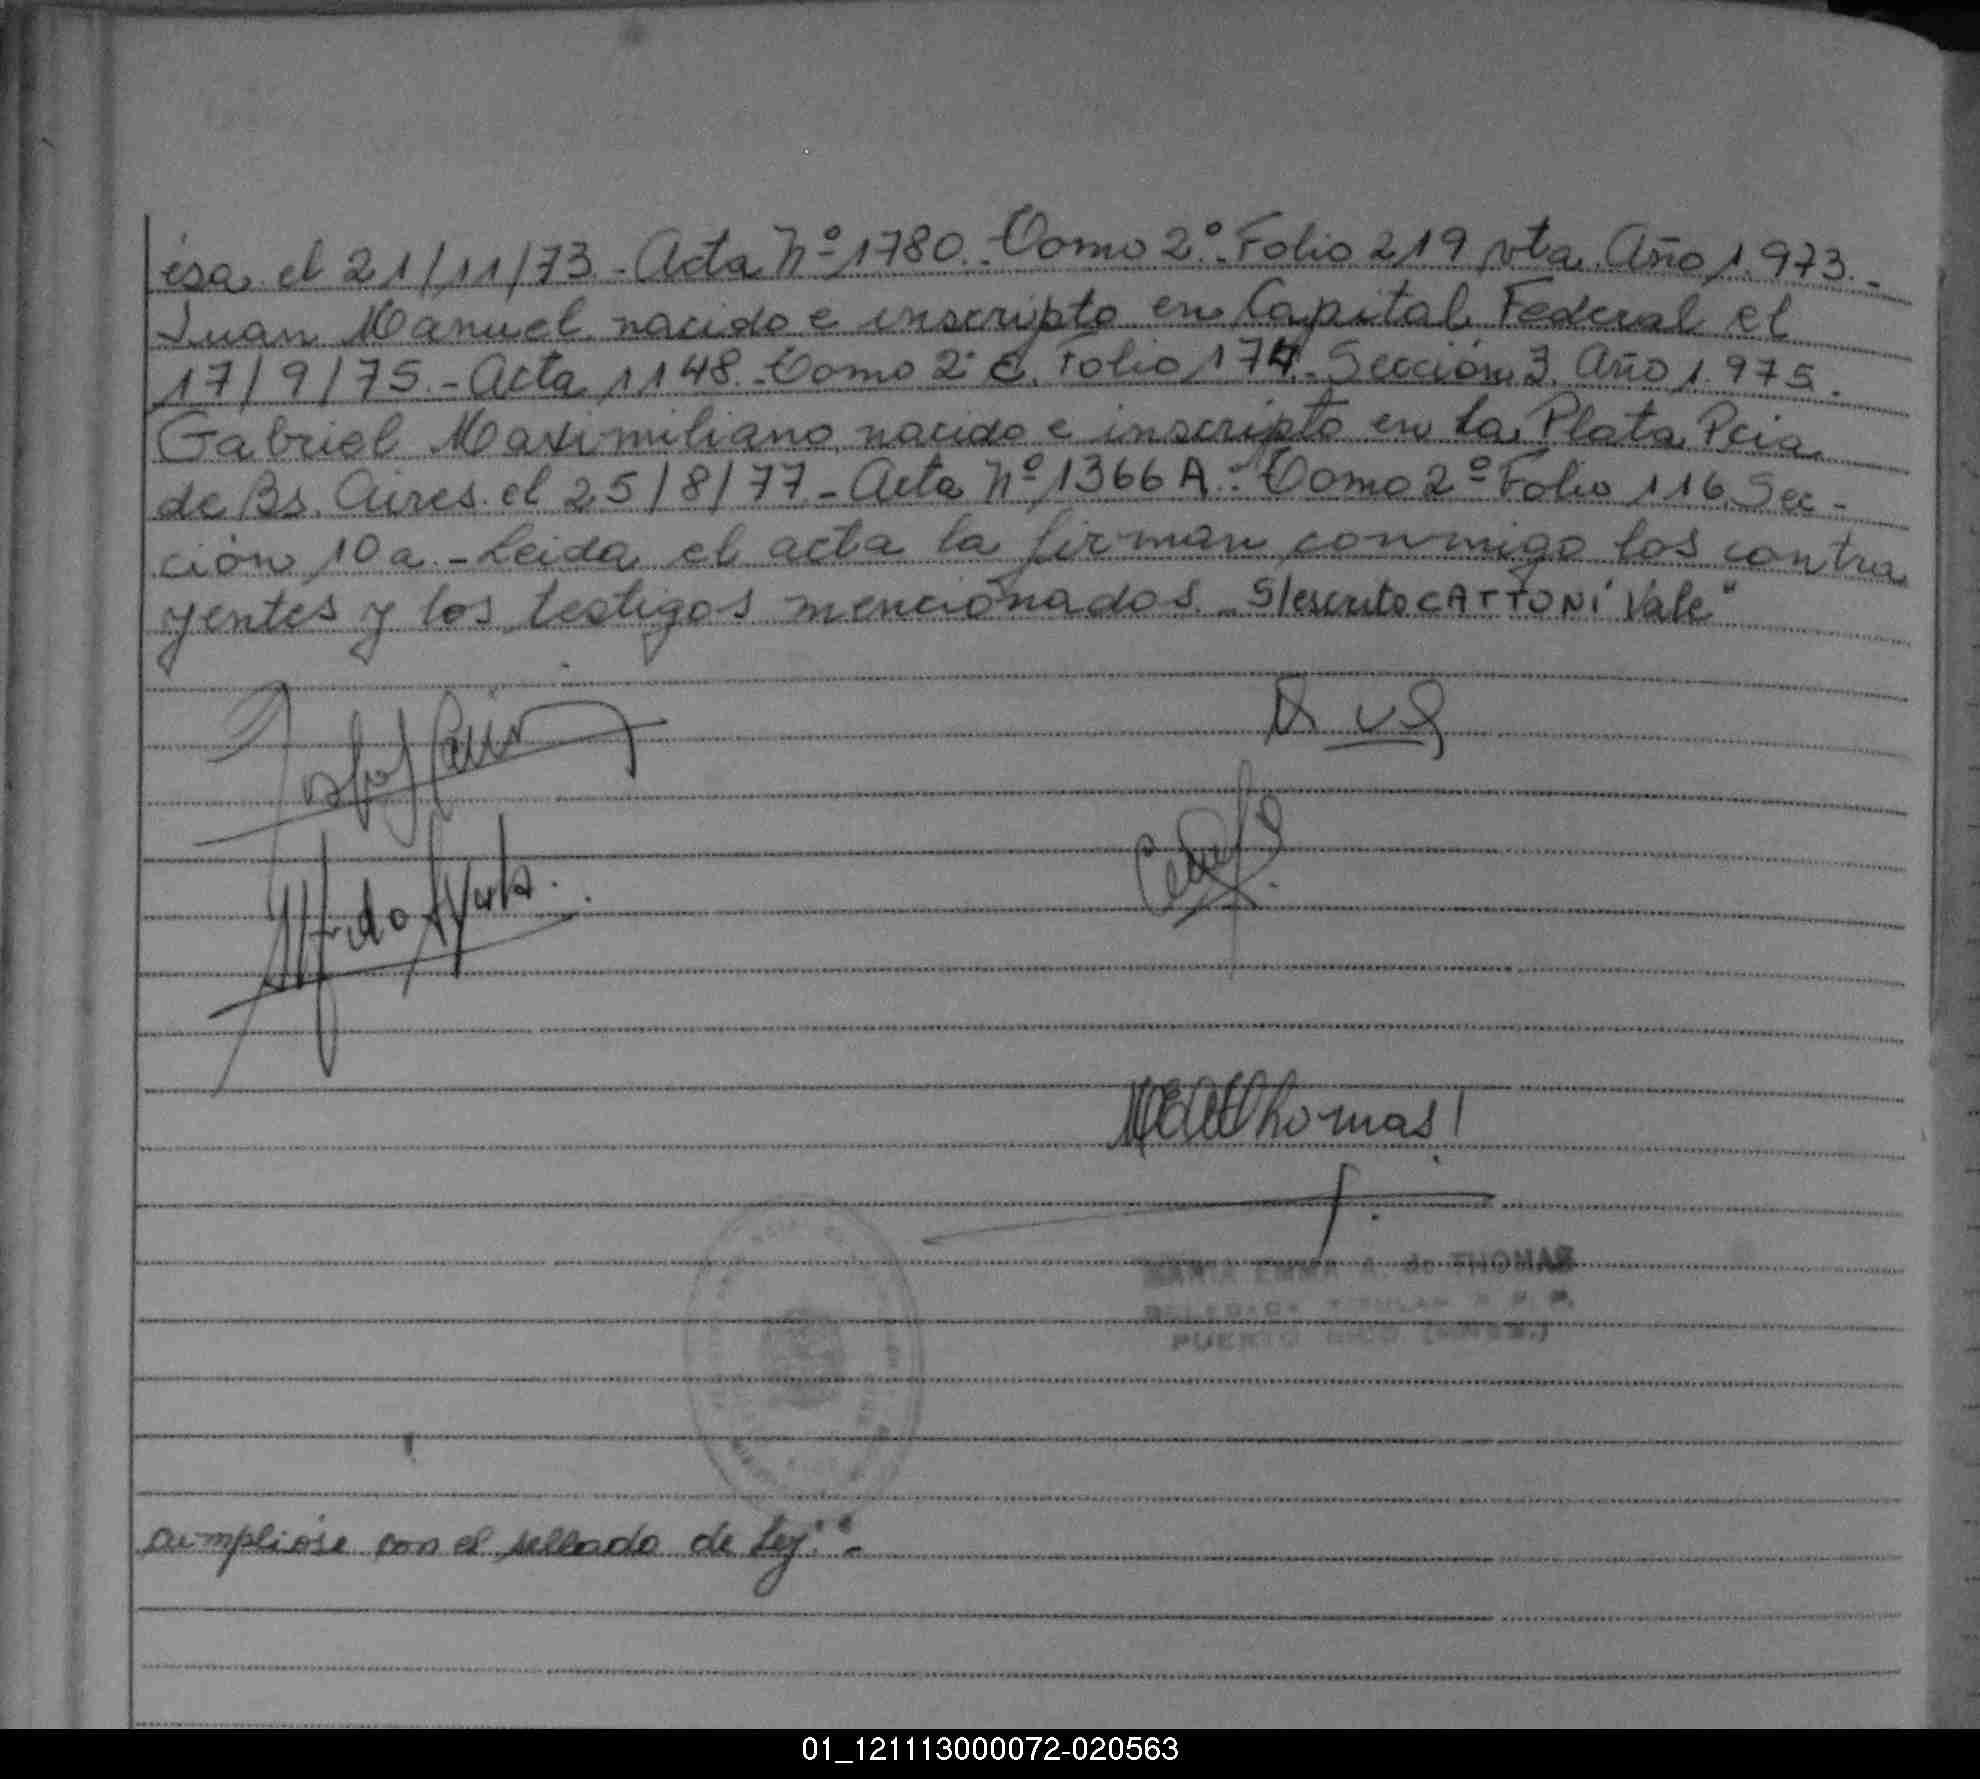 ésa el 21/11/73.- Acta Nº 1780.- Tomo 2º.- Folio 219 vta. Año 1.973.-
Juan Manuel nacido e inscripto en Capital Federal el
17/9/75.- Acta 1148.- Tomo 2º C. Folio 174.- Sección 3. Año 1.975.
Gabriel Maximiliano nacido e inscripto en La Plata Pcia.
de Bs. Aires el 25/8/77.- Acta Nº 1366 A.- Tomo 2º Folio 116 Sec-
ción 10a.- Leida el acta la firman conmigo los contra
yentes y los testigos mencionados. S/escrito CATTONI Vale"
MEAThomas
MARIA EMMA A. de THOMAS
DELEGADA TITULAR R. P. P.
PUERTO RICO (MNES.)
cumpliose con el sellado de Ley".-
01_121113000072-020563